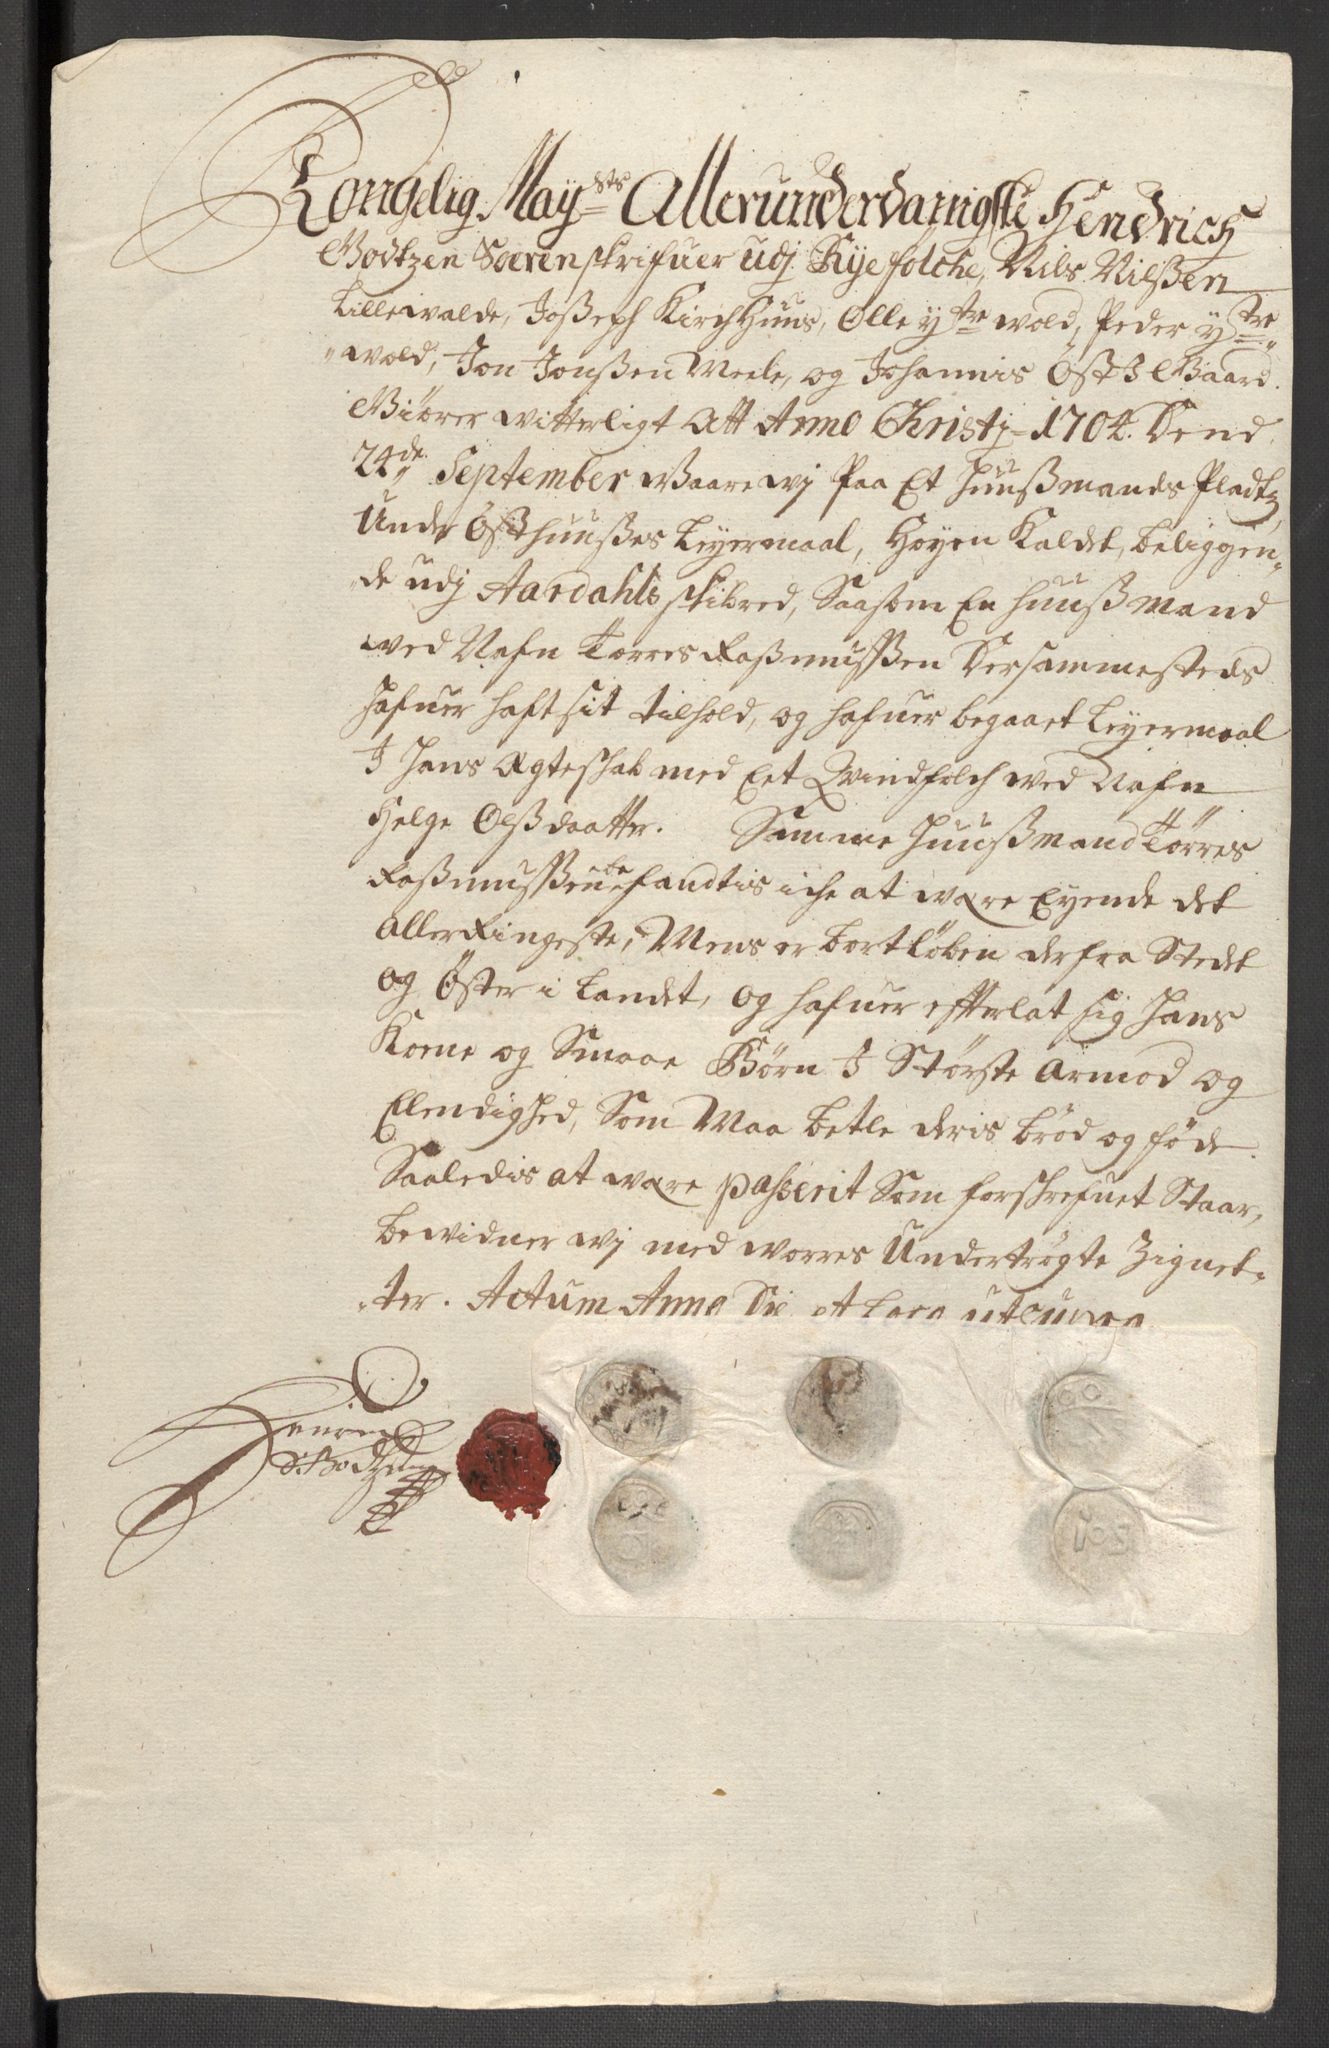 Kongelig May:sts Allerunderdanigste Hendrich
Godtzen Sorenskrifuer udj Ryefölcke, Nils Nilßen
Lillewalde, Joßeph Kirchhuus, Olle ÿtre wold, Peder ÿtre
wold, Jon Jonßen Meele, og Johannis Öst J Gaard
Giörer witterligt Att Anno Christj 1704. Dend
24de September Waare wj Paa Et Huußmands Pladtz,
Under Östhuußes Leyermaal, Hoyen Kaldet, beliggen„
„de udj Aardahls skibred, Saasom En huußmand
wed Nafn Torres Raßmußßen Dersammesteds
hafuer haft sit tilhold, og hafuer begaaet Leyermaal
J hans Ægteskab med Eet Qvindfolch wed Nafn
Helge Olßdaatter. Samme Huußmand Törres
Raßmußßen befandtis iche at være Eyende det
allerRingeste, Mens er bortLöben derfra Stedet
og Öster i Landet, og hafuer efterlat sig hans
Kone og Smaae Börn J Störste Armod og
Elendighed, Som Maa betle deris bröd og föde.
Saaledis at være passerit Som forschrefuet Staar,
bewidner wj med worres Undertrögte Zignet„
„ter. Actum Anno Die et Loco ut supra
Henrich
Godtzen
105